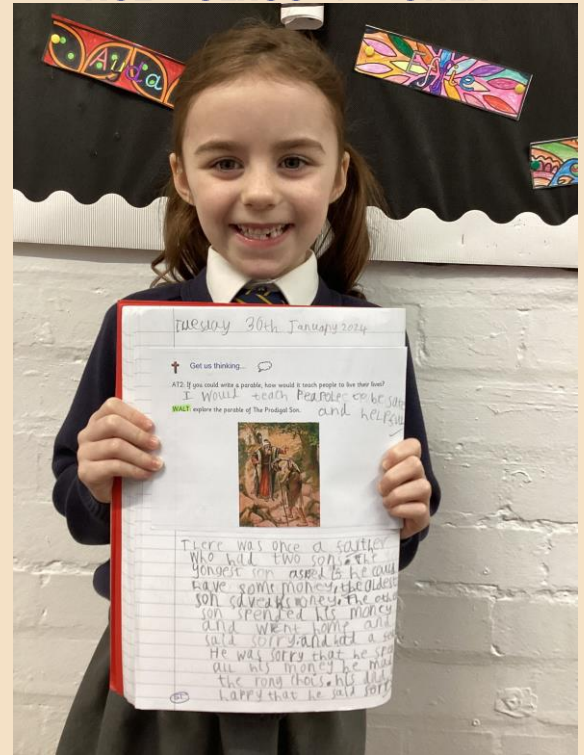 Aida
Tuesday 30th January 2024
Get us thinking...
AT2: If you could write a parable, how would it teach people to live their lives?
I would teach Peaple to be safe
and helpfull
WALT: explore the parable of The Prodigal Son.
There was once a faither
who had two sons. the
yongest son asked if he could
have some money. the oldest
son saved his money. the othe
son spended his money
and went home and
said sorry. and
He was sorry that he
all his money he mad
the rong chois. his dad
happy that he said sorry